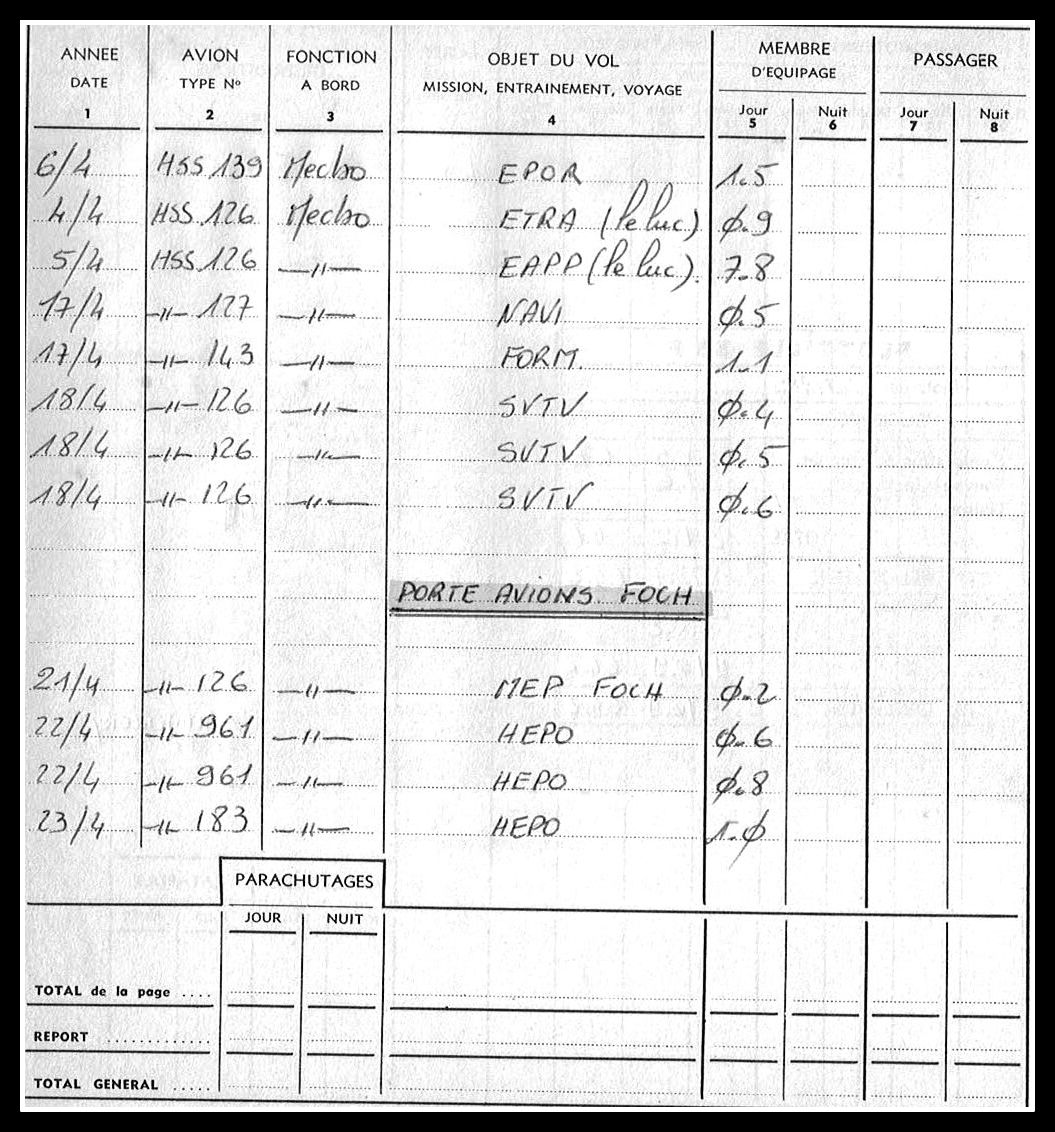 ANNEE AVION FONCTION OBJET DU VOL MEMBRE PASSAGER
DATE TYPE Nº A BORD MISSION, ENTRAINEMENT, VOYAGE D'EQUIPAGE
Jour Nuit Jour Nuit
1 2 3 4 5 6 7 8
6/4 HSS 139 Mecbo EPOR 1.5
4/4 HSS 126 Mecbo ETRA (le luc) Ø.9
5/4 HSS 126 —〃— EAPP (le luc). 7.8
17/4 —〃— 127 —〃— NAVI Ø.5
17/4 —〃— 143 —〃— FORM. 1.1
18/4 —〃— 126 —〃— SVTV Ø.4
18/4 —〃— 126 —〃— SVTV Ø.5
18/4 —〃— 126 —〃— SVTV Ø.6
PORTE AVIONS FOCH
21/4 —〃— 126 —〃— MEP FOCH Ø.2
22/4 —〃— 961 —〃— HEPO Ø.6
22/4 —〃— 961 —〃— HEPO Ø.8
23/4 —〃— 183 —〃— HEPO 1.Ø
PARACHUTAGES
JOUR NUIT
TOTAL de la page ....
REPORT ............
TOTAL GENERAL .....